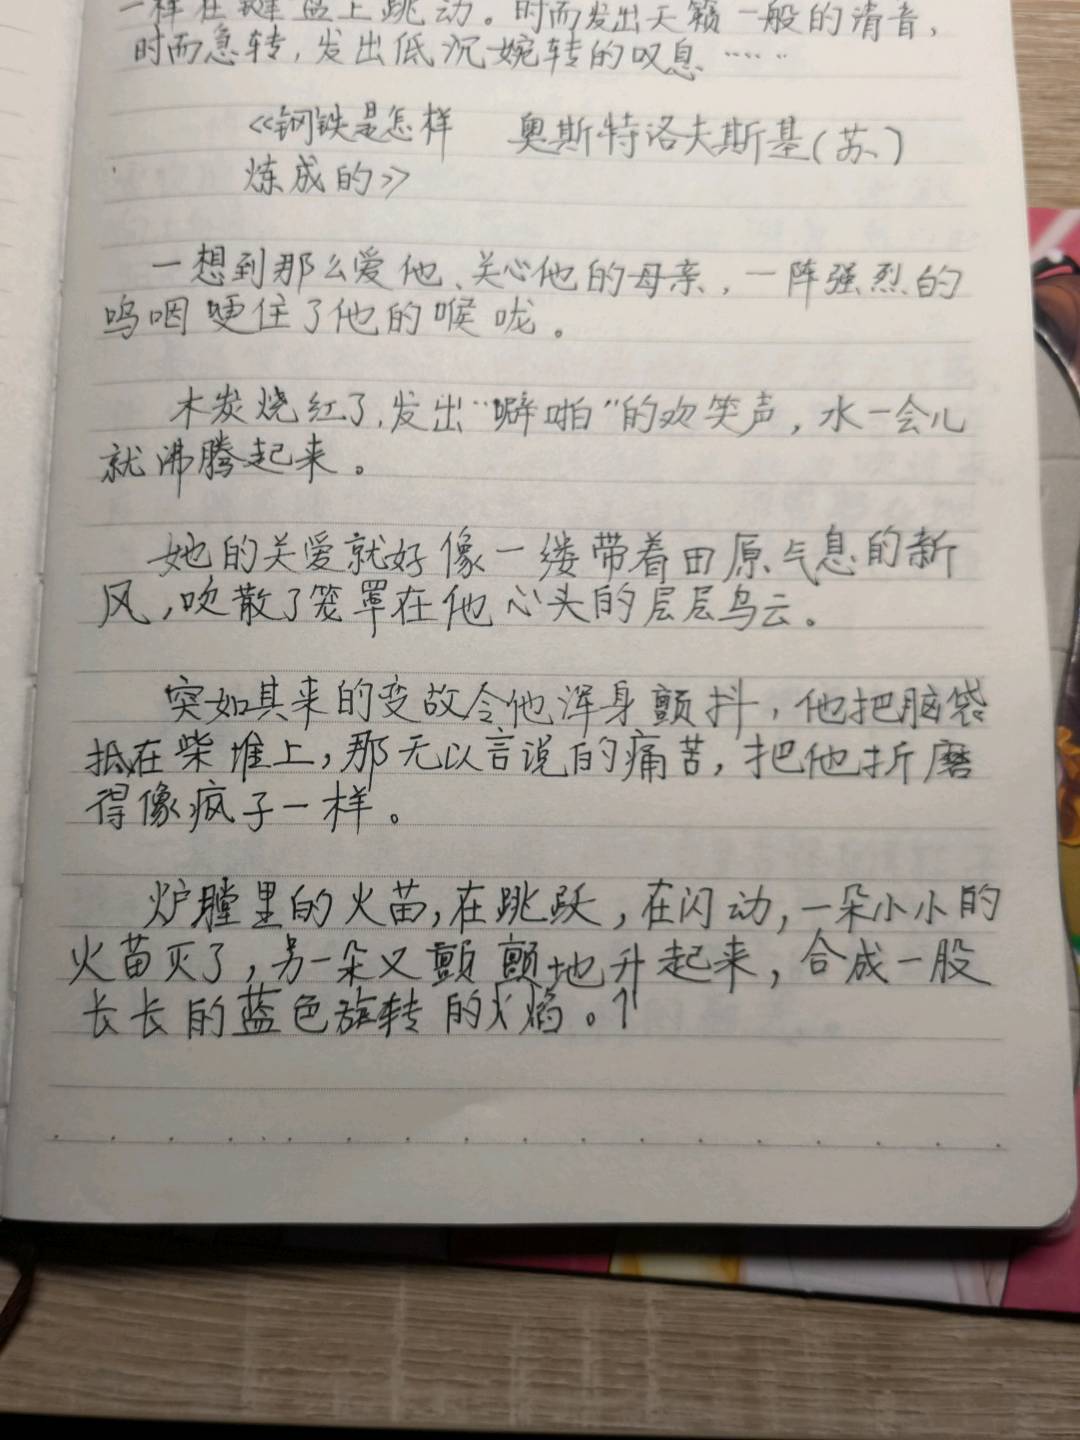 一样在键盘上跳动。时而发出天籁一般的清音，
时而急转，发出低沉婉转的叹息……
《钢铁是怎样 奥斯特洛夫斯基（苏）
炼成的》
一想到那么爱他、关心他的母亲，一阵强烈的
呜咽哽住了他的喉咙。
木炭烧红了，发出“噼啪”的欢笑声，水一会儿
就沸腾起来。
她的关爱就好像一缕带着田原气息的新
风，吹散了笼罩在他心头的层层乌云。
突如其来的变故令他浑身颤抖，他把脑袋
抵在柴堆上，那无以言说的痛苦，把他折磨
得像疯子一样。
炉膛里的火苗，在跳跃，在闪动，一朵小小的
火苗灭了，另一朵又颤颤地升起来，合成一股
长长的蓝色旋转的火焰。个